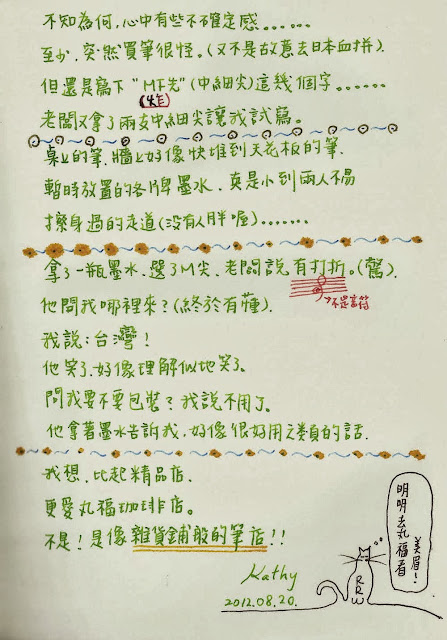 不知為何，心中有些不確定感......
至少，突然買筆很怪。(又不是故意去日本血拼)。
但還是寫下"MF尖"(中細尖)這幾個字......
(炸)
老闆又拿了兩支中細尖讓我試寫。
桌上的筆，牆上好像快堆到天花板的筆，
暫時放置的各牌墨水，真是小到兩人不易
擦身過的走道(沒有人胖喔)......
拿了一瓶墨水，選了M尖，老闆說有打折。(驚)。
→不是音符
他問我哪裡來？(終於有懂)。
我說：台灣！
他笑了，好像理解似地笑了。
問我要不要包裝？我說不用了。
他拿著墨水告訴我，好像很好用之類的話。
我想，比起精品店，
更愛丸福珈琲店。
不是！是像雜貨鋪般的筆店！！
明明去丸福看
美眉！
Kathy
2012.08.20.